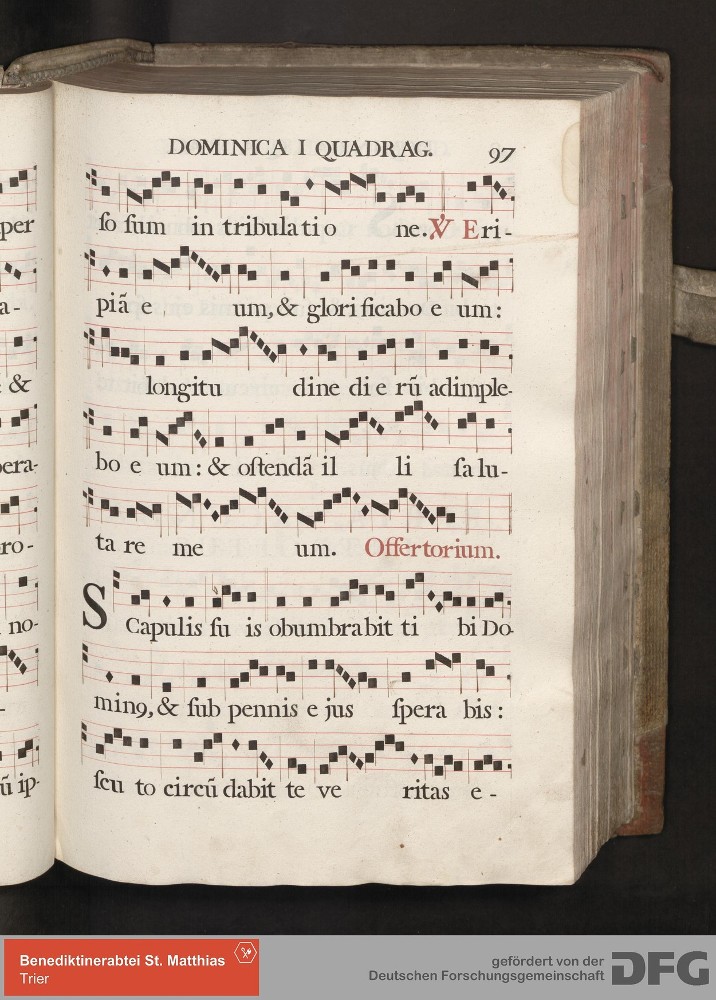 DOMINICA I QUADRAG. 97
per
ſo ſum in tribulatio ne. ℣ Eri-
a-
piã e um, & glorificabo e um:
: &
longitu dine di e rũ adimple-
pera-
bo e um: & oſtendã il li ſalu-
ro-
ta re me um. Offertorium.
no-
SCapulis ſu is obumbrabit ti bi Do-
-
min9, & ſub pennis e jus ſpera bis:
ũ ip-
ſcu to circũ dabit te ve ritas e -
Benediktinerabtei St. Matthias
Trier
gefördert von der
Deutschen Forschungsgemeinschaft
DFG